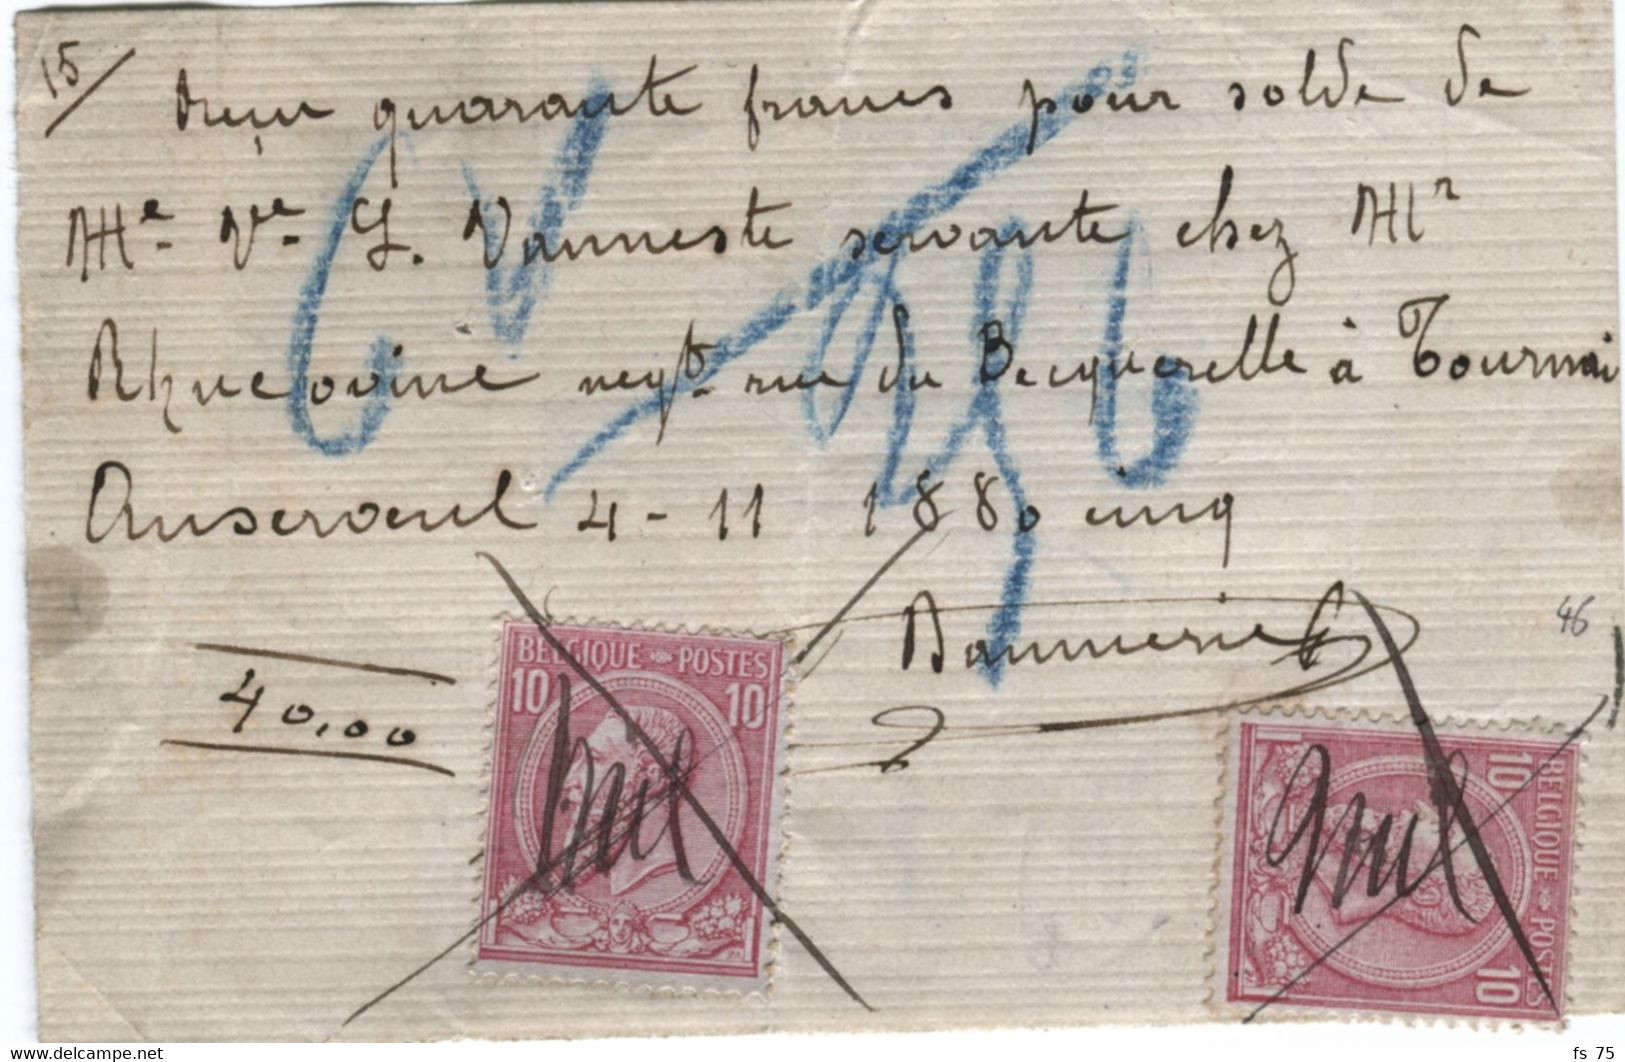 15/
reçu quarante francs pour solde de
Me Ve L. Vanneste servante chez Mr
negt rue du Becquerelle à Tournai
Anseroeul 4-11 1880 cinq
46
40,00
BELGIQUE POSTES
10 10
Nul
BELGIQUE POSTES
10 10
Nul
www.delcampe.net
fs_75